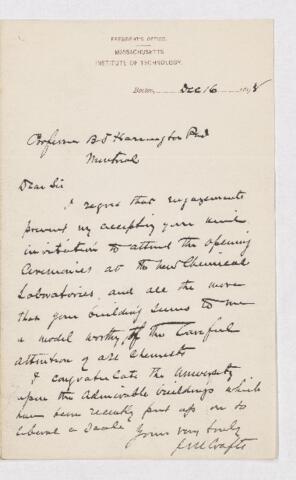 PRESIDENT'S OFFICE.
MASSACHUSETTS
INSTITUTE OF TECHNOLOGY.
Boston, Dec 16 1898
Professor B J Harrington PhD
Montreal
Dear Sir
I regret that engagements
prevent my accepting your kind
invitation to attend the opening
Ceremonies at the new Chemical
Laboratories, and all the more
that your building seems to me
a model worthy of the Careful
attention of all Chemists
I congratulate the University
upon the Admirable buildings which
have been recently put up on so
liberal a Scale
Yours very truly
J M Crafts